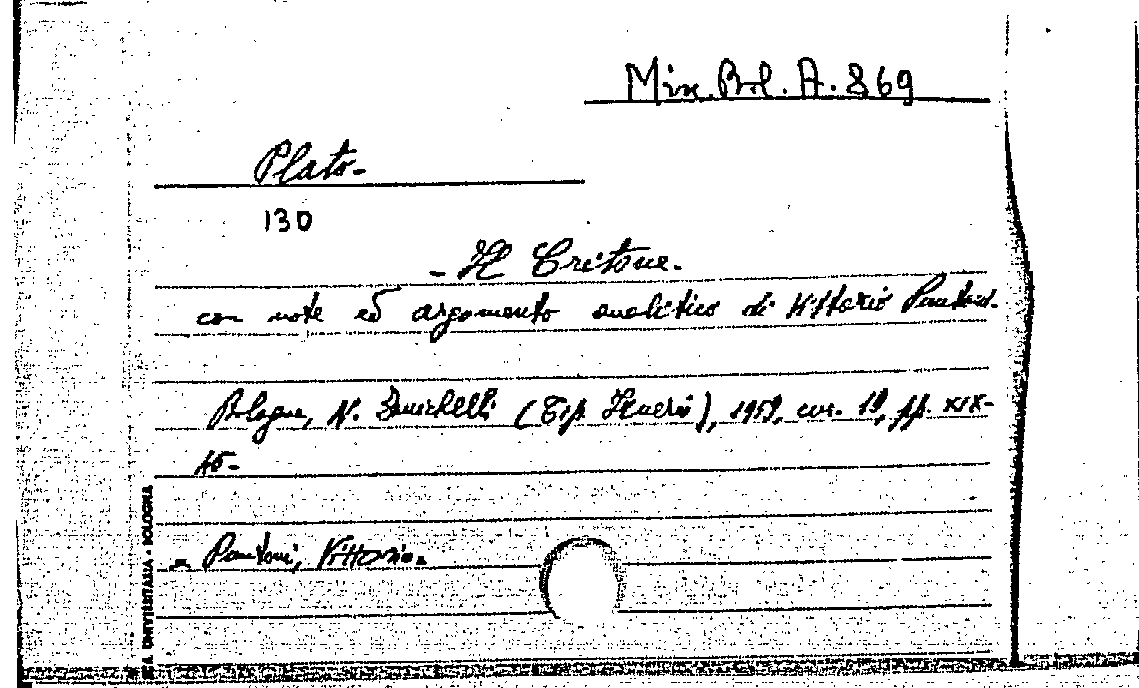 Min. Bol. A. 869
Plato-
130
- Il Critone.
con note ed argomento analitico di Vittorio
Bologna, N. Zanichelli (Tip. ), cm. 19, pp. XIX-
45-
- Pantoni, Vittorio.
UNIVERSITARIA - BOLOGNA